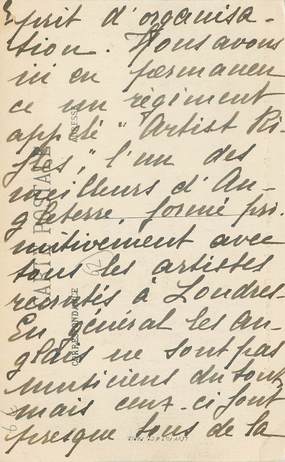 prit d'organisa-
tion. Nous avons
ici en permanen
ce un régiment
appelé "Artist Ri-
fles", l'un des
meilleurs d'An-
gleterre, formé pri-
mitivement avec
tous les artistes
recrutés à Londres.
En général les an-
glais ne sont pas
musiciens du tout,
mais ceux-ci font
presque tous de la
CARTE POSTALE
CORRESPONDANCE